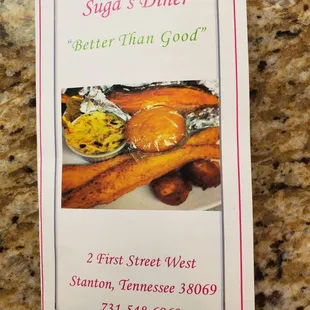 Suga's Diner
"Better Than Good"
2 First Street West
Stanton, Tennessee 38069